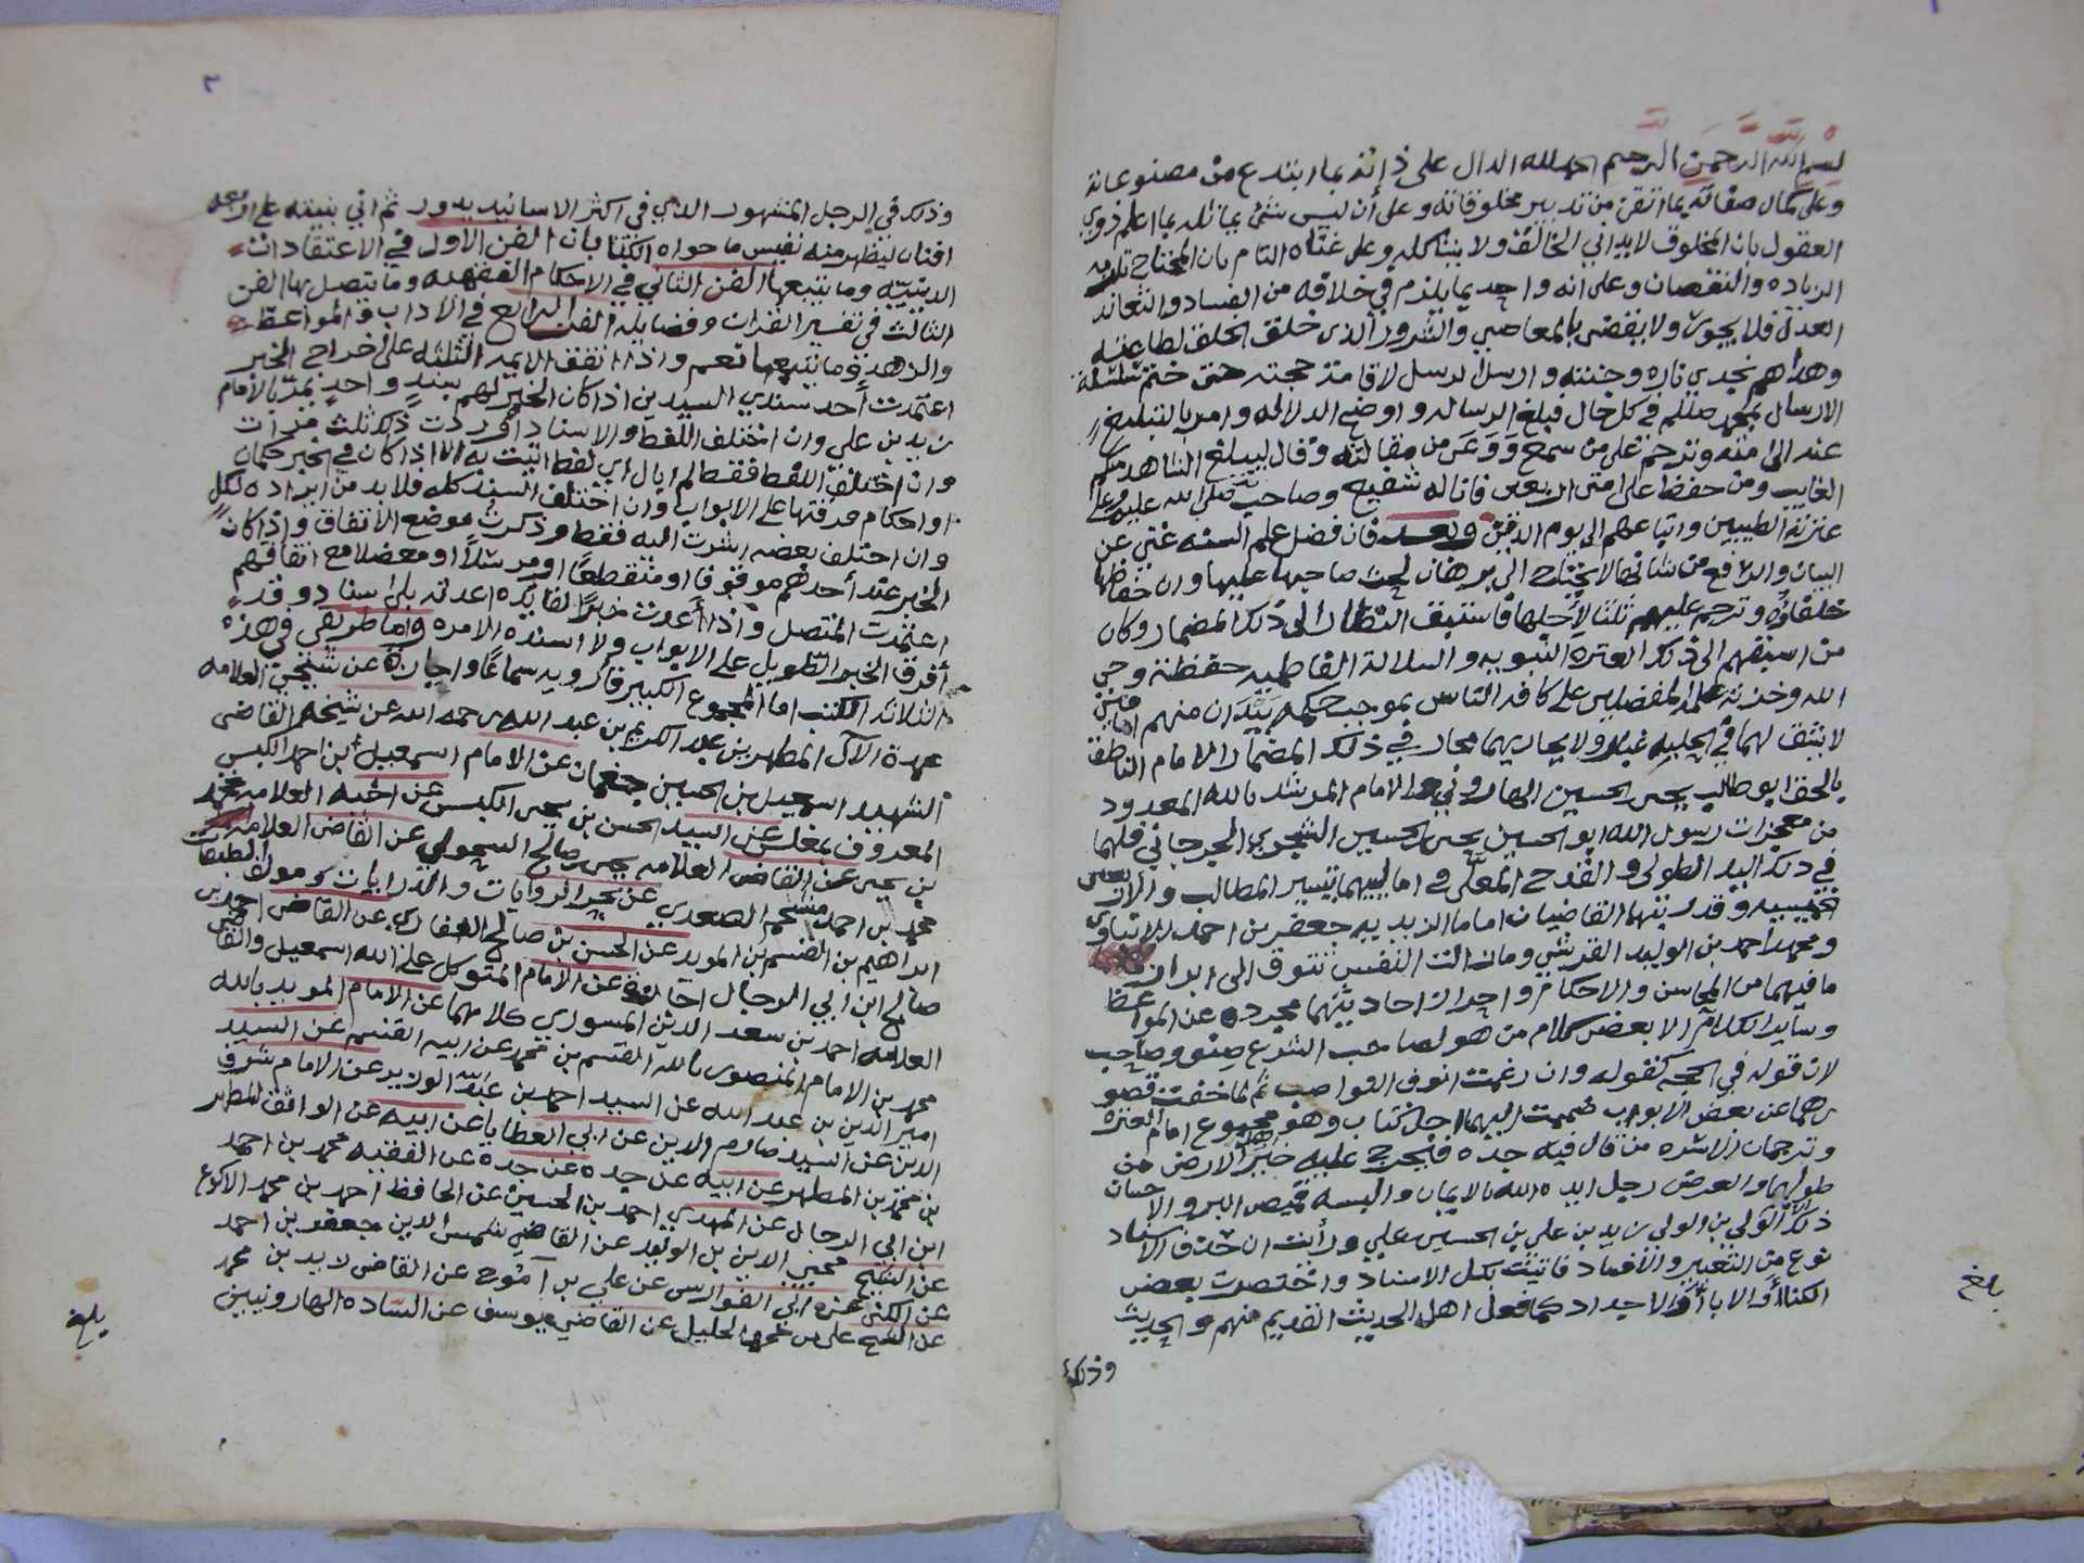 بسم الله الرحمن الرحيم الحمد لله الدال على ذاته بما ابتدع من مصنوعاته
وعلى كمال صفاته بما اتقن من تدبير مخلوقاته وعلى أن ليس شئ يماثله بما اعلم ذوي
العقول بان المخلوق لا يداني الخالق ولا يشاكله وعلى غناه التام بان المحتاج تلزمه
الزياده والنقصان وعلى انه واحد بما يلزم في خلافه من الفساد والتعاند
العدل فلا يجور ولا يقضى بالمعاصي والشرور الذى خلق الخلق لطاعته
وهداهم نجدي ناره وجنته وارسل الرسل لاقامة حجته حتى ختم سلسلة
الارسال بمحمد صللم في كل حال فبلغ الرساله و اوضح الدلاله وامر بالتبليغ
عنه الى امته وترحم على من سمع ووعى من مقالته وقال ليبلغ الشاهد منكم
الغايب ومن حفظ على امتى اربعين فانا له شفيع وصاحب صلى الله عليه وعلى
عترته الطيبين واتباعهم الى يوم الدين وبعد فان فضل علم السنه غني عن
البيان والرافع من شانها لا يحتاج الى برهان لحث صاحبها عليها وان حفاظها
خلفاؤه وترحم عليهم ثلثا لأجلها فاستبق النظار الى ذلك المضمار وكان
من اسبقهم الى ذلك العتره النبويه والسلالة الفاطميه حفظة وحي
الله وخزنة علمه المفضلين على كافه الناس بموجب حكمه بيد ان منهم امامين
لا يشق لهما في الحلبه غبار ولا يجاريهما مجار في ذلك المضمار الامام الناطق
بالحق ابو طالب يحيى بن الحسين الهاروني والامام المرشد بالله المعدود
من معجزات رسول الله ابو الحسين يحيى بن الحسين الشجري الجرجاني فلهما
في ذلك اليد الطولى والقدح المعلى و اماليهما تيسير المطالب والاثنينيه
الخميسيه وقد رتبها القاضيان اماما الزيديه جعفر بن احمد الابناوي
ومحمد احمد بن الوليد القرشي ومازالت النفس تتوق الى ابراز
ما فيهما من المحاسن والاحكام و احراز احاديثهما مجرده عن المواعظ
وساير الكلام الا بعض كلام من هو لصاحب الشرع صنو وصاحب
لان قوله في الحجه كقوله وان رغمت انوف النواصب ثم لما خفت قصو
رهما عن بعض الابواب ضممت اليهما اجل كتاب وهو مجموع امام العتره
وترجمان الاشره من قال فيه جده فيخرج عليه خير اهل الارض من
طولها والعرض رجل ايده الله بالايمان والبسه قميص البر والاحسان
ذلك الولي بن الولي زيد بن علي بن الحسين بن علي ورأيت ان حذف الاسناد
نوع من التغيير والافساد فاتيت بكل الاسناد واختصرت بعض
الكنا أو الابا أو الاجداد كما فعل اهل الحديث القديم منهم والحديث
وذلك
بلغ
٢
وذلك في الرجل المشهور الذي في اكثر الاسانيد يدور ثم اني بنيته على اربعه
افنان ليظهر منه نفيس ما حواه الكتابان الفن الاول في الاعتقادات
الدينيه وما يتبعها الفن الثاني في الاحكام الفقهيه وما يتصل بها الفن
الثالث في تفسير القران وفضايله الفن الرابع في الاداب والمواعظ
والزهد وما يتبعها نعم واذا اتفق الايمه الثلثه على اخراج الخبر
اعتمدت أحد سندي السيدين اذا كان الخبر لهم بسند واحد يمر بالامام
زيد بن علي وان اختلف اللفظ والاسناد أوردت ذلك ثلث مرات
وان اختلف اللفظ فقط لم ابال اي لفظ اتيت به الا اذا كان في الخبر حكمان
او احكام فرقتها على الابواب وان اختلف السند كله فلا بد من ايراده لكل
وان اختلف بعضه اشرت اليه فقط وذكرت موضع الاتفاق واذا كان
الخبر عند أحدهم موقوفا او منقطعًا او مرسلاً او معضلا مع اتفاقهم
اعتمدت المتصل واذا أعدت خبرًا لفايده اعدته بلا اسناد وقد
أفرق الخبر الطويل على الابواب ولا اسنده الا مره واما طريقي في هذه
الثلاثه الكتب اما المجموع الكبير فأرويه سماعًا واجازة عن شيخي العلامه
عمدة الآل المطهر بن عبد الكريم بن عبد الله رحمه الله عن شيخه القاضى
الشهيد اسمعيل بن الحسين جغمان عن الامام اسمعيل ابن احمد الكبسي
المعروف بمغلس عن السيد الحسن بن يحيى الكبسي عن اخيه العلامه محمد
بن يحيى عن القاضى العلامه يحيى بن صالح السحولي عن القاضى العلامه
محمد بن احمد مشحم الصعدي عن بحر الروايات والدرايات ومولف الطبقات
ابراهيم بن القسم بن المويد عن الحسن بن صالح العفاري عن القاضى احمد بن
صالح ابن ابي الرجال اجازة عن الامام المتوكل على الله اسمعيل والقاضي
العلامه احمد بن سعد الدين المسوري كلاهما عن الامام المويد بالله
محمد بن الامام المنصور بالله القسم بن محمد عن ابيه القسم عن السيد
امير الدين بن عبد الله عن السيد احمد بن عبدالله الوزير عن الامام شرف
الدين عن السيد صارم الدين عن ابي العطايا عن ابيه عن الواثق المطهر
بن محمد بن المطهر عن ابيه عن جده عن جده عن الفقيه محمد بن احمد
ابن ابي الرجال عن المهدي احمد بن الحسين عن الحافظ احمد بن محمد الاكوع
عن الشيخ محيي الدين بن الوليد عن القاضي شمس الدين جعفر بن احمد
عن الكني عن ابي الفوارس عن علي بن آموج عن القاضى زيد بن محمد
عن الشيخ علي بن محمد الخليل عن القاضي يوسف عن الساده الهارونيين
بلغ